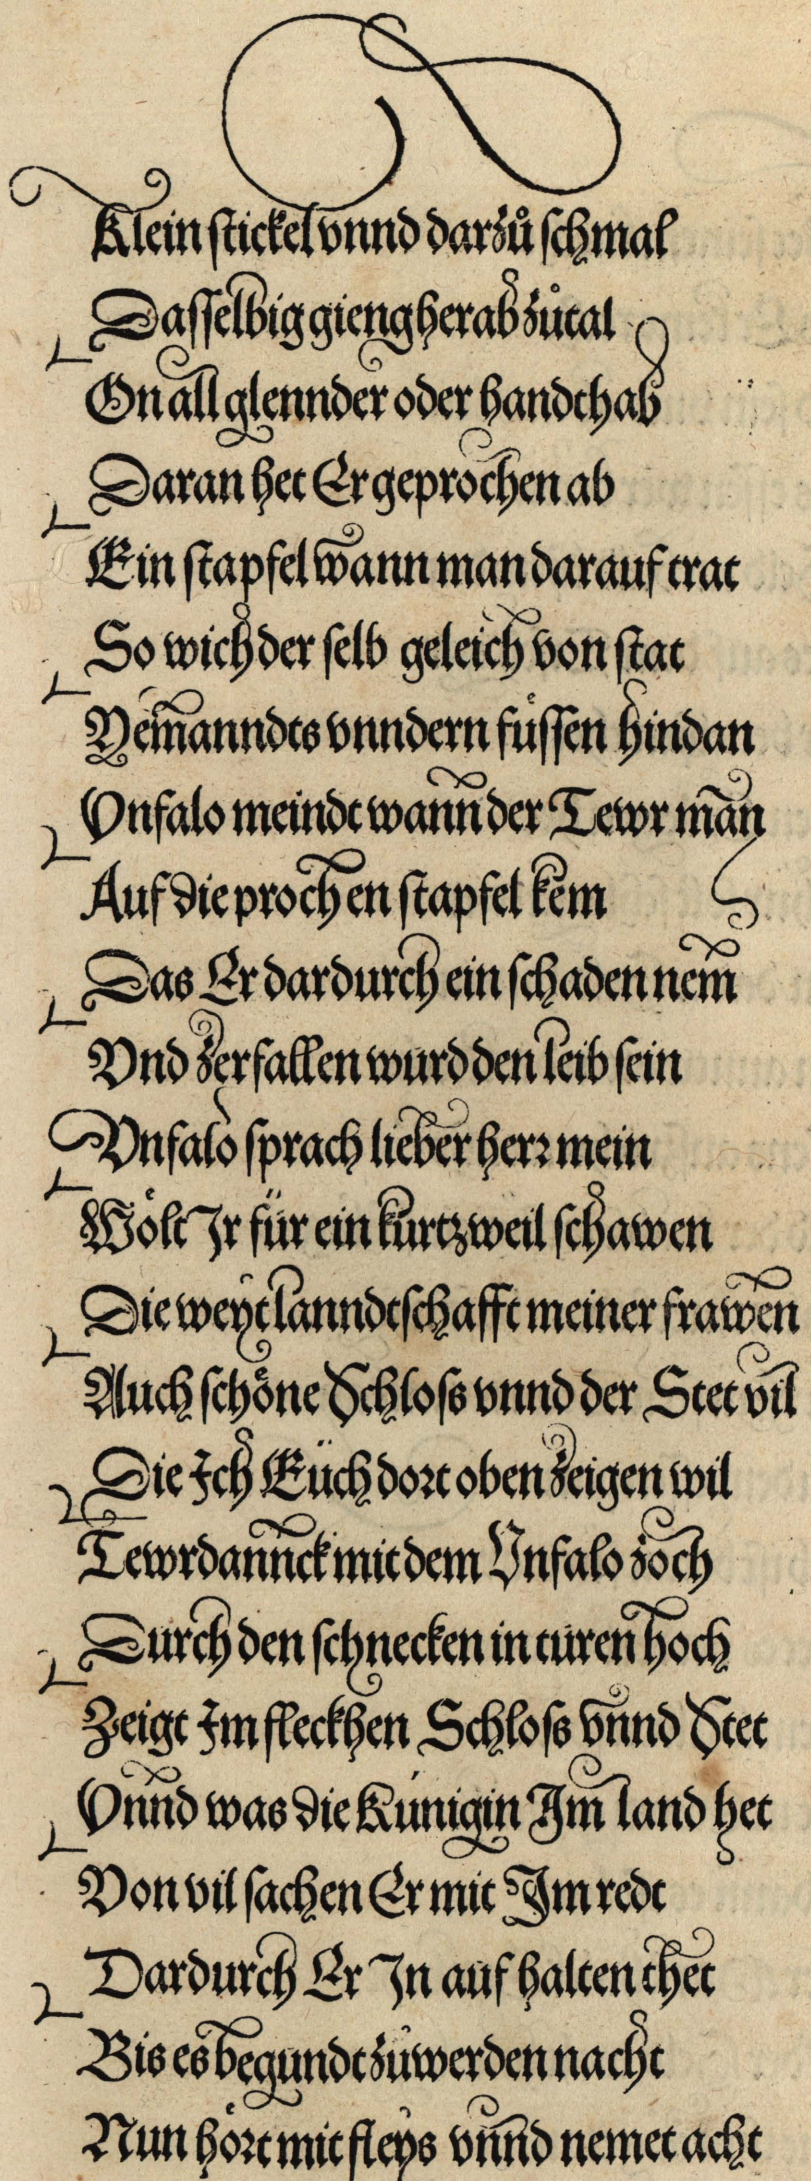 Klein stickel vnnd darzů schmal
Dasselbig gieng herab zůtal
On all glennder oder handthab
Daran het Er geprochen ab
Ein stapfel wann man darauf trat
So wich der selb geleich von stat
Yemanndts vnndern füssen hindan
Vnfalo meindt wann der Tewr man
Auf die prochen stapfel kem
Das Er dardurch ein schaden nem
Vnd zerfallen wurd den leib sein
Vnfalo sprach lieber herr mein
Wölt Jr für ein kurtzweil schawen
Die weyt lanndtschafft meiner frawen
Auch schöne Schloss vnnd der Stet vil
Die Ich Eüch dort oben zeigen wil
Tewrdannck mit dem Vnfalo zoch
Durch den schnecken in turen hoch
Zeigt Im fleckhen Schloss vnnd Stet
Vnnd was die Künigin Im land het
Von vil sachen Er mit Im redt
Dardurch Er Jn auf halten thet
Bis es begundt zůwerden nacht
Nun hört mit fleys vnnd nemet acht